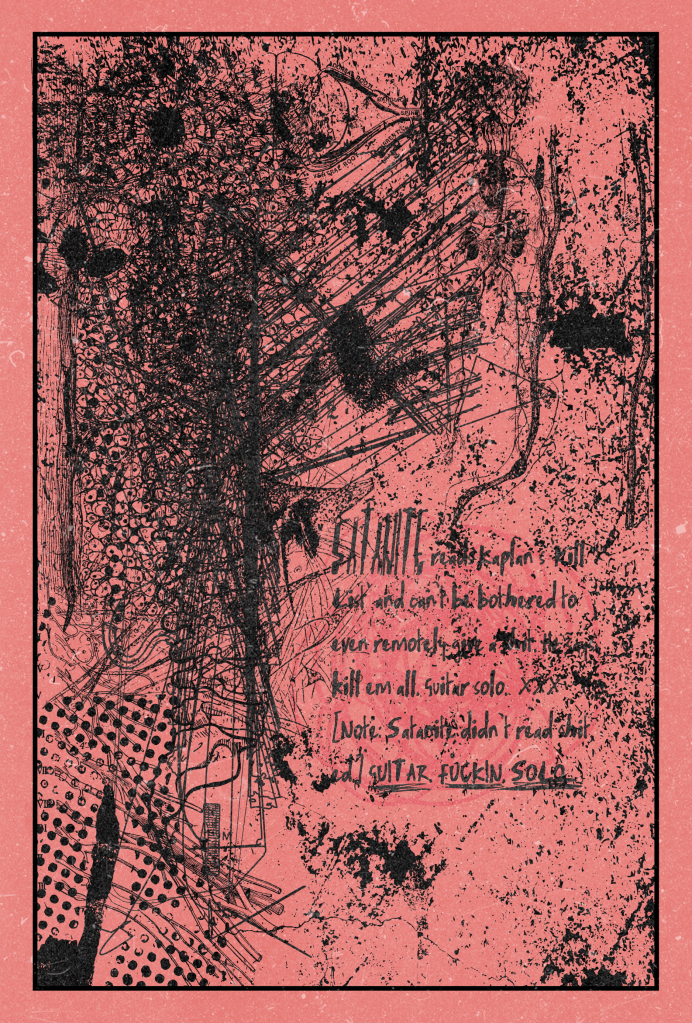 SATANITE reads Kaplan's Kill
List and can't be bothered to
even remotely give a shit. He says
kill em all. guitar solo. XXX
[Note: Satanite didn't read shit.
ed] GUITAR FUCKIN SOLO